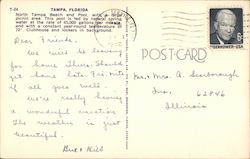 T-24 TAMPA, FLORIDA
North Tampa, Beach and Pool, with a
picnic area. This pool is fed by natural spring
water at the rate of 45,000 gallons per minute
and with a constant year-round temperature of
72°. Clubhouse and lockers in background.
POST CARD
EISENHOWER·USA
Dear Friends,
We will be leaving
for home There. Should
get home late Fri. nite
if all goes well.
We're really having
a wonderful vacation
The weather is just
beautiful.
Mr. + Mrs. A. Scarborough
62846
Illinois